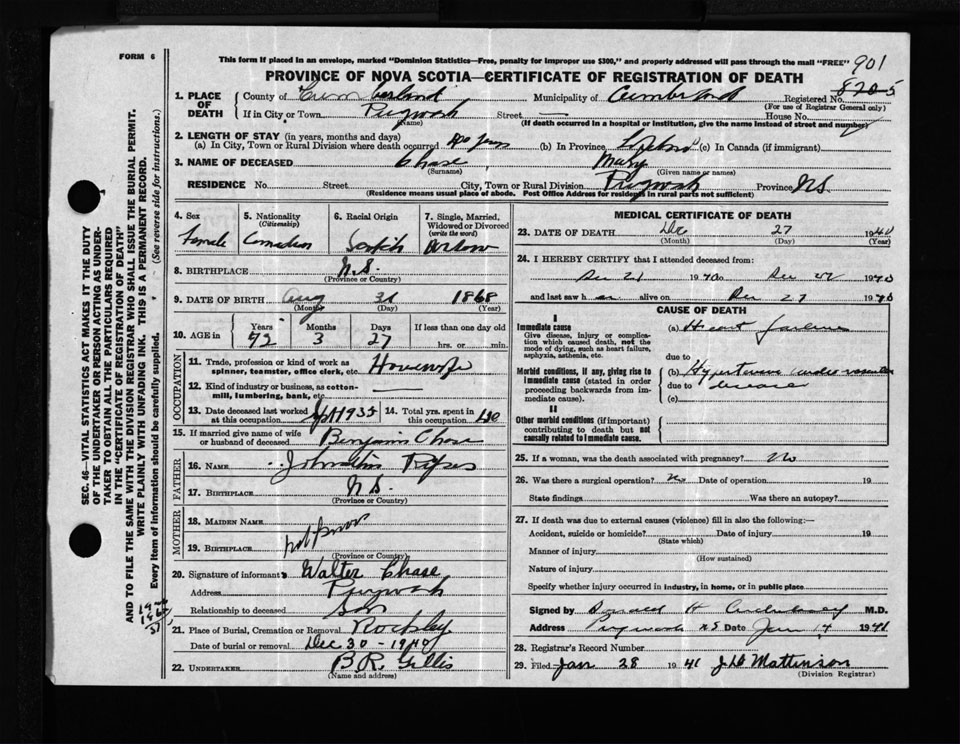 FORM 6
This form if placed in an envelope, marked "Dominion Statistics—Free, penalty for improper use $300," and properly addressed will pass through the mail "FREE"
901
PROVINCE OF NOVA SCOTIA—CERTIFICATE OF REGISTRATION OF DEATH
1. PLACE OF DEATH County of Cumberland Municipality of Cumberland Registered No. 820-5
(For use of Registrar General only)
If in City or Town Pugwash Street — House No.
(Name) (If death occurred in a hospital or institution, give the name instead of street and number)
2. LENGTH OF STAY (in years, months and days)
(a) In City, Town or Rural Division where death occurred 40 years (b) In Province Lifetime (c) In Canada (if immigrant)
3. NAME OF DECEASED Chase Mary
(Surname) (Given name or names)
RESIDENCE No. Street City, Town or Rural Division Pugwash Province N.S.
(Residence means usual place of abode. Post Office Address for residents in rural parts not sufficient)
4. Sex 5. Nationality (Citizenship) 6. Racial Origin 7. Single, Married, Widowed or Divorced (write the word)
Female Canadian Scotch Widow
8. BIRTHPLACE N.S.
(Province or Country)
9. DATE OF BIRTH Aug 31 1868
(Month) (Day) (Year)
10. AGE in Years Months Days If less than one day old
72 3 27 hrs. or min.
OCCUPATION
11. Trade, profession or kind of work as spinner, teamster, office clerk, etc. Housewife
12. Kind of industry or business, as cotton-mill, lumbering, bank, etc. —
13. Date deceased last worked at this occupation Sept 1935 14. Total yrs. spent in this occupation 40
15. If married give name of wife or husband of deceased Benjamin Chase
FATHER
16. NAME
17. BIRTHPLACE N.S.
(Province or Country)
MOTHER
18. MAIDEN NAME
not known
19. BIRTHPLACE
(Province or Country)
20. Signature of informant Walter Chase
Address Pugwash
Relationship to deceased Son
21. Place of Burial, Cremation or Removal Rockley
Date of burial or removal Dec 30 - 1940
22. UNDERTAKER B.R. Gillis
(Name and address)
MEDICAL CERTIFICATE OF DEATH
23. DATE OF DEATH Dec 27 1940
(Month) (Day) (Year)
24. I HEREBY CERTIFY that I attended deceased from:
Dec 21 1940 to Dec 27 1940
and last saw her alive on Dec 27 1940
CAUSE OF DEATH
I
Immediate cause
Give disease, injury or complication which caused death, not the mode of dying, such as heart failure, asphyxia, asthenia, etc.
(a) Heart failure
due to
Morbid conditions, if any, giving rise to immediate cause (stated in order proceeding backwards from immediate cause).
(b) Hypertensive cardio vascular
due to disease
(c)
II
Other morbid conditions (if important) contributing to death but not causally related to immediate cause.
25. If a woman, was the death associated with pregnancy? No
26. Was there a surgical operation? No Date of operation 19
State findings Was there an autopsy?
27. If death was due to external causes (violence) fill in also the following:—
Accident, suicide or homicide? Date of injury 19
(State which)
Manner of injury
(How sustained)
Nature of injury
Specify whether injury occurred in industry, in home, or in public place
Signed by Donald H M.D.
Address Pugwash N S Date Jan 14 1941
28. Registrar's Record Number
29. Filed Jan 28 1941 Mattinson
(Division Registrar)
SEC. 46—VITAL STATISTICS ACT MAKES IT THE DUTY
OF THE UNDERTAKER OR PERSON ACTING AS UNDER-
TAKER TO OBTAIN ALL THE PARTICULARS REQUIRED
IN THE "CERTIFICATE OF REGISTRATION OF DEATH"
AND TO FILE THE SAME WITH THE DIVISION REGISTRAR WHO SHALL ISSUE THE BURIAL PERMIT.
WRITE PLAINLY WITH UNFADING INK. THIS IS A PERMANENT RECORD.
Every item of information should be carefully supplied. * (See reverse side for instructions.)